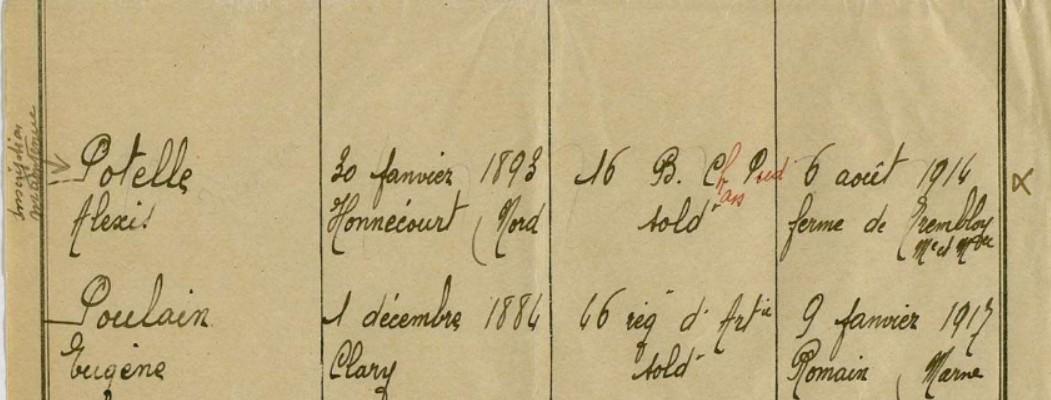 Inscription
maintenue
Potelle 30 janvier 1893 16 B. Ch Pied 6 août 1914
as
Alexis Honnécourt (Nord sold^t ferme de Trembloy
Poulain 1 décembre 1884 46 reg^t d'Art^ie 9 janvier 1917
Eugène Clary sold^t Romain (Marne